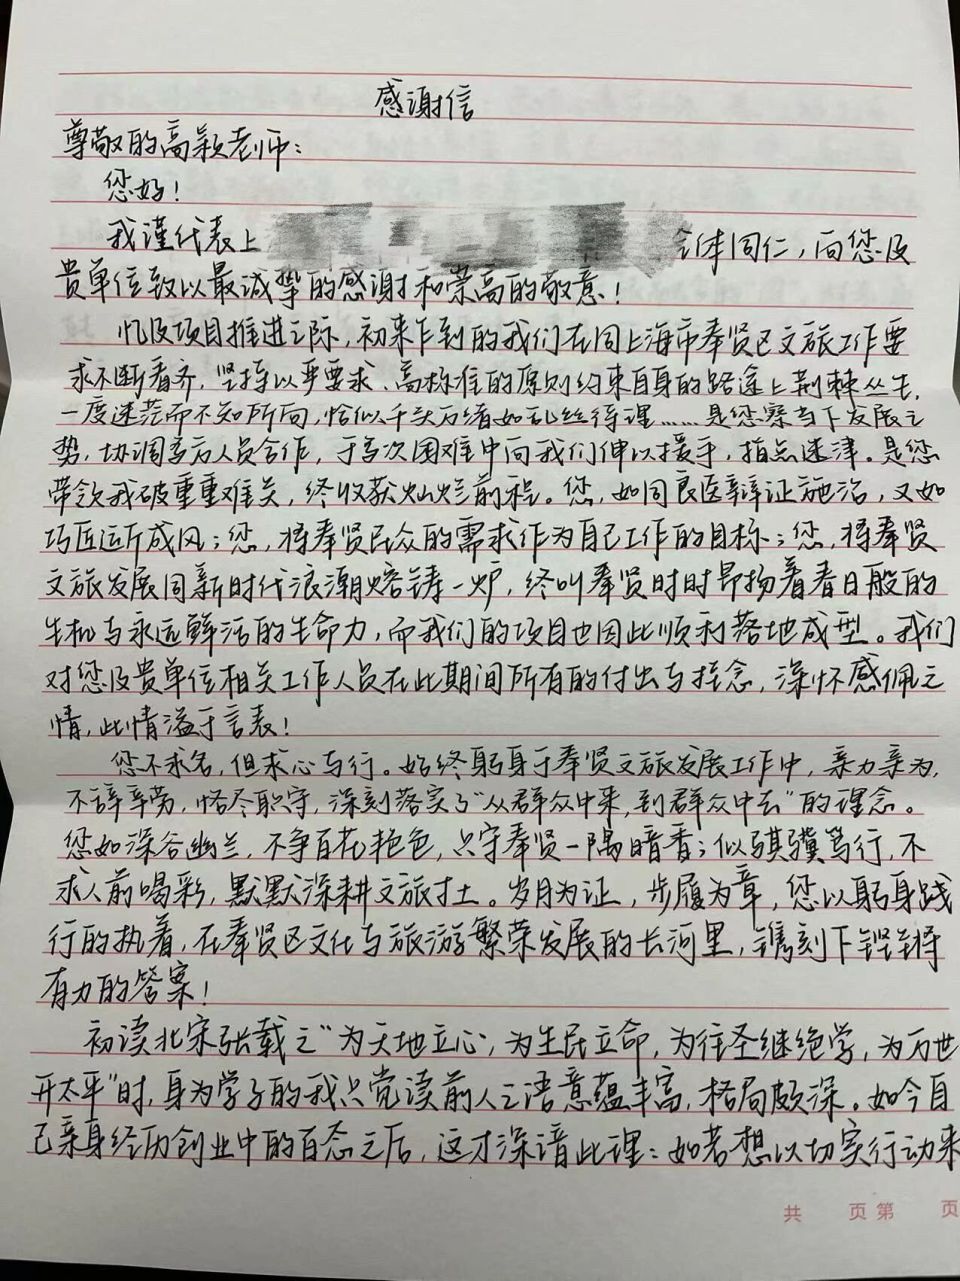 感谢信
尊敬的高颖老师：
您好！
我谨代表上 全体同仁，向您及
贵单位致以最诚挚的感谢和崇高的敬意！
忆及项目推进之际，初来乍到的我们在同上海市奉贤区文旅工作要
求不断看齐，坚持以严要求、高标准的原则约束自身的路途上荆棘丛生，
一度迷茫而不知所向，恰似千头万绪如乱丝待理……是您察当下发展之
势，协调多方人员合作，于多次困难中向我们伸以援手，指点迷津。是您
带领我破重重难关，终收获灿烂前程。您，如同良医辩证施治，又如
巧匠运斤成风；您，将奉贤民众的需求作为自己工作的目标；您，将奉贤
文旅发展同新时代浪潮熔铸一炉，终叫奉贤时时昂扬着春日般的
生机与永远鲜活的生命力，而我们的项目也因此顺利落地成型。我们
对您及贵单位相关工作人员在此期间所有的付出与挂念，深怀感佩之
情，此情溢于言表！
您不求名，但求心与行。始终躬身于奉贤文旅发展工作中，亲力亲为，
不辞辛劳，恪尽职守，深刻落实了“从群众中来，到群众中去”的理念。
您如深谷幽兰，不争百花艳色，只守奉贤一隅暗香；似骐骥笃行，不
求人前喝彩，默默深耕文旅寸土。岁月为证，步履为章，您以躬身践
行的执着，在奉贤区文化与旅游繁荣发展的长河里，镌刻下铿锵
有力的答案！
初读北宋张载之“为天地立心，为生民立命，为往圣继绝学，为万世
开太平”时，身为学子的我只觉读前人之语意蕴丰富，格局颇深。如今自
己亲身经历创业中的百态之后，这才深谙此理：如若想以切实行动来
共 页 第 页